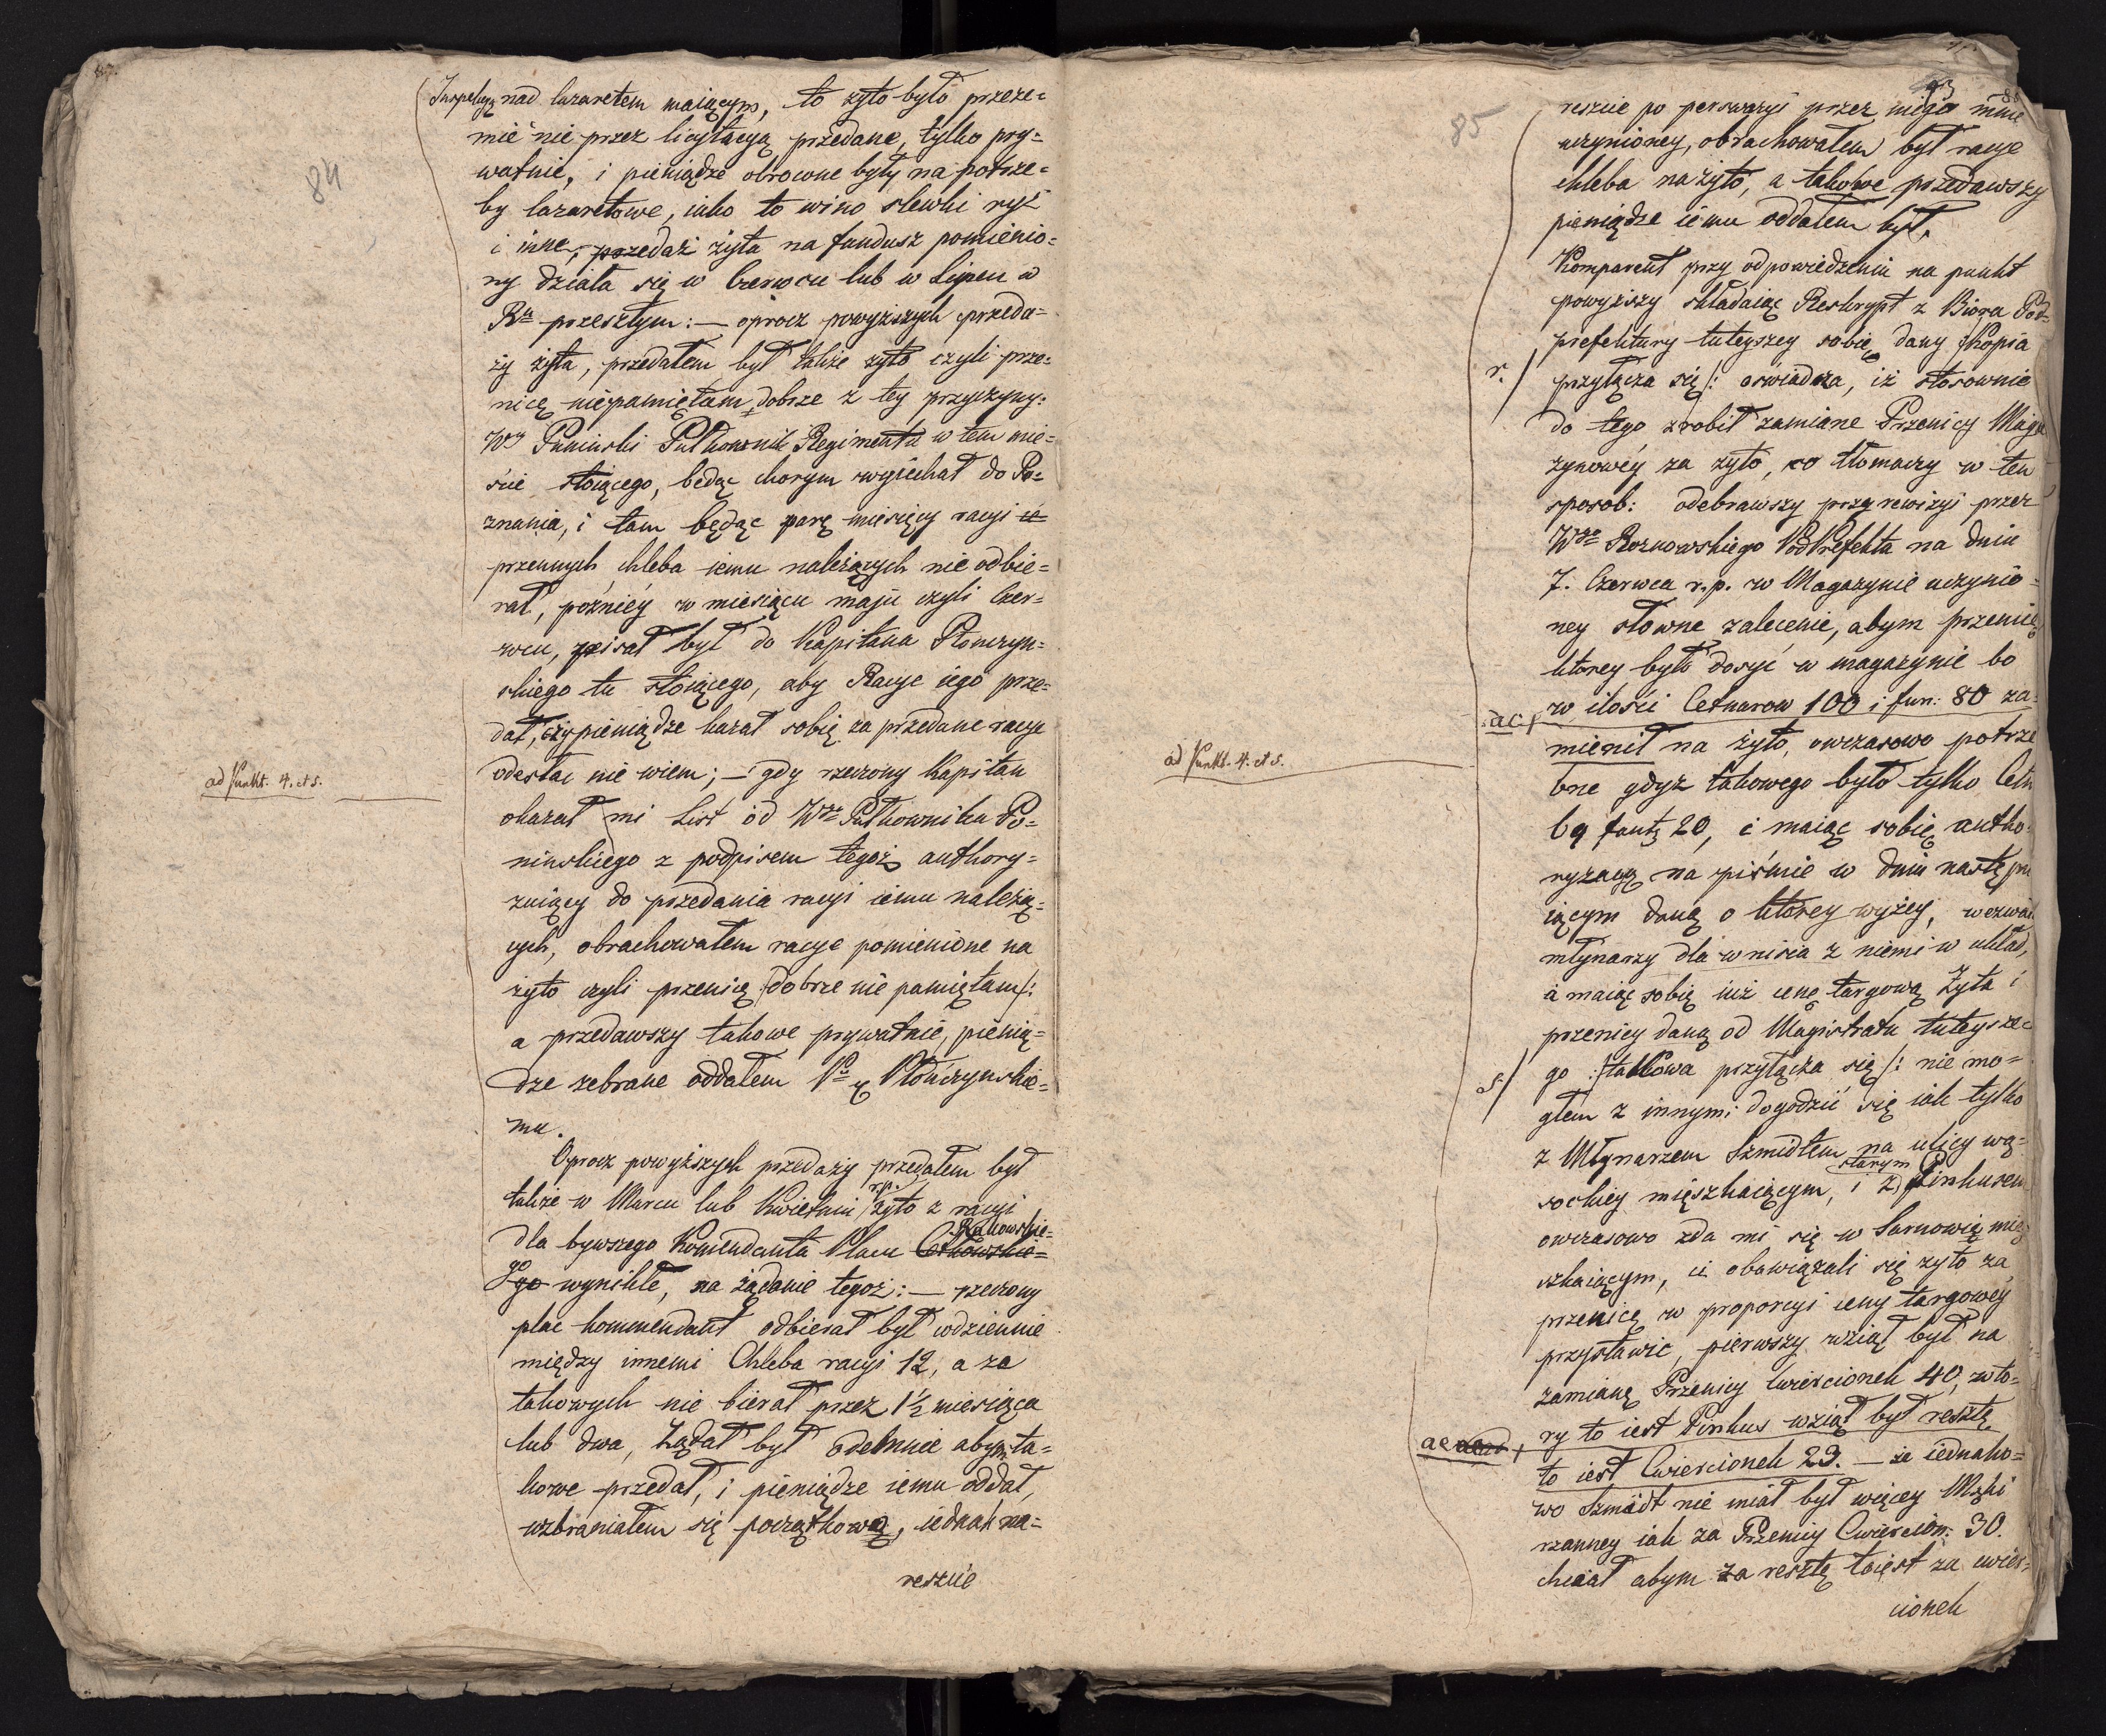 84
Inspekcyą nad lazaretem maiącym, to żyto było przeze=
mie nie przez licytacyą przedane, tylko pry=
watnie, i pieniądze obrocone były na potrze=
by lazaretowe, iako to wino slewki ryż
i inne, przedaż żyta na fundusz pomienio=
ny działa się w Czerwcu lub w Lipcu w
Ru przeszłym: — oprocz powyższych przeda=
ży żyta, przedałem był także żyto czyli prze=
nicę niepamiętam dobrze z tey przyczyny:
Wy Puninski Pułkownik Regimentu w tem mie=
ście stoiącego, będąc chorym wyiechał do Po=
znania, i tam będąc parę miesięcy racyi
przennych chleba iemu należących nie odbie=
rał, poźniey w miesiącu maju czyli Czer=
wcu, pisał był do Kapitana Płonczyn=
skiego tu stoiącego, aby Racye iego prze=
dał, czy pieniądze kazał sobię za przedane racye
odesłac nie wiem; — gdy rzeczony Kapitan
ad Punkt. 4. et 5.
okazał mi List od Wgo Pułkownika Po=
ninskiego z podpisem tegoż authory=
zuiący do przedania racyi iemu należą=
cych, obrachowałem racye pomienione na
żyto czyli przenicę :/dobrze nie pamiętam/:
a przedawszy takowe prywatnie, pienią=
dze zebrane oddałem Płończynskie=
mu.
Oprocz powyższych przedaży przedałem był
także w Marcu lub Kwietniu r.p. żyto z racyi
dla bywszego Komendanta Placu Rakowskie=
go wynikłe, na żądanie tegoż: — rzeczony
plac kommendant odbierał był codziennie
między innemi Chleba racyi 12, a za
takowych nie bierał przez 1½ miesiąca
lub dwa, żądał był odemnie abym ta=
kowe przedał, i pieniądze iemu oddał,
wzbraniałem się początkowo, iednak na=
reszcie
85
93
88
reszcie po perswazyi przez niego mnie
uczynioney, obrachowałem był racye
chleba na żyto, a takowe przedawszy
pieniądze iemu oddałem był.
Komparent przy odpowiedzeniu na punkt
powyższy składaiąc Reskrypt z Biora Pod=
prefektury tuteyszey sobię dany /:Kopia
r./ przyłącza się/: oswiadcza, iż stosownie
do tego zrobił zamiane Przenicy Maga
zynowéy za żyto, co tłomaczy w ten
sposob: odebrawszy przy rewizyi przez
Wgo Roznowskiego PodPrefekta na dniu
7. Czerwca r.p. w Magazynie uczynio=
ney słowne zalecenie, abym przenicę
ktorey było dosyć w magazynie bo
w ilości Cetnarow 100 i fun: 80 za=
ac/
mienił na żyto, owczasowo potrze
bne gdyż takowego było tylko Cetn
69 funt 20, i maiąc sobię autho=
ryzacyą na piśmie w dniu następu
iącym daną o ktorey wyżey, wezwał
ad Punkt. 4. et 5.
młynarzy dla wniscia z niemi w układ,
a maiąc sobię iuż cenę targową żyta i
przenicy daną od Magistratu tuteysze=
s/ go :/takowa przyłącza się/: nie mo=
głem z innymi dogodzić się iak tylko
z Młynarzem Szmidtem na ulicy wą=
sockiey mięszkaiącym, i z starym Pinkusem
owczasowo zda mi się w Sarnowię mię
szkaiącym, ci obowiązali się żyto za
przenicę w proporcyi ceny targowey
przystawic, pierwszy wziął był na
zamianę Przenicy Cwiercionek 40, wto=
ry to iest Pinkus wziął był resztę
ae
to iest Cwiercionek 29. — że iednako=
wo Szmidt nie miał był więcey Mąki
rzanney iak za Przenicy Cwiercion: 30.
chciał abym za resztę toiest za cwier=
cionek